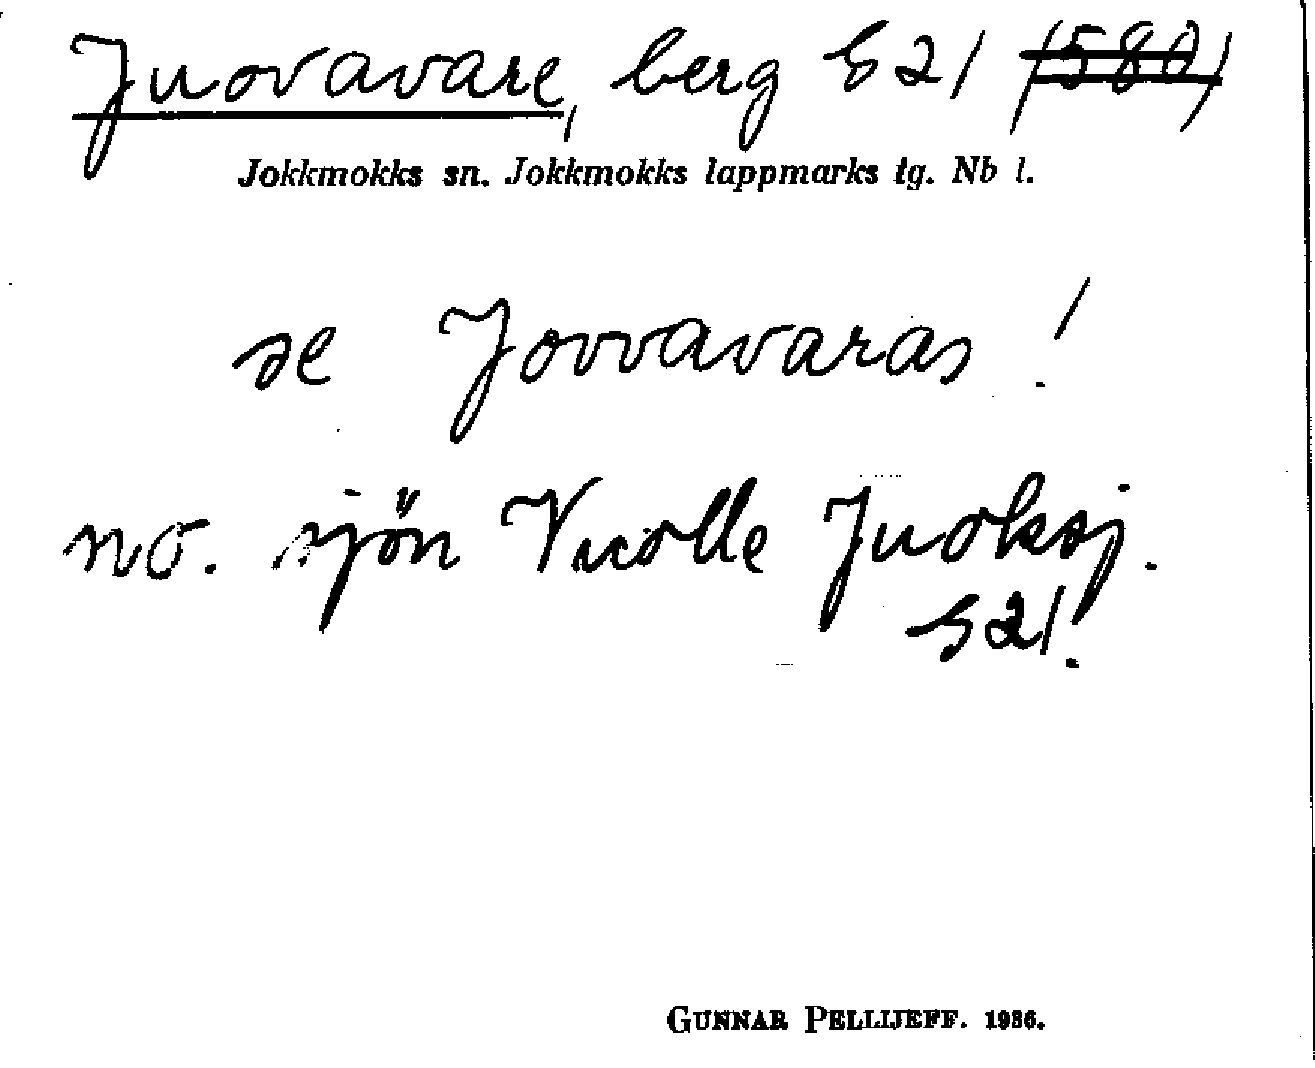 Juovavare, berg 521 (580)
Jokkmokks sn. Jokkmokks lappmarks tg. Nb l.
se Jovvavaras!
no. sjön Vuolle Juoksj.
521.
GUNNAR PELLIJEFF. 1936.